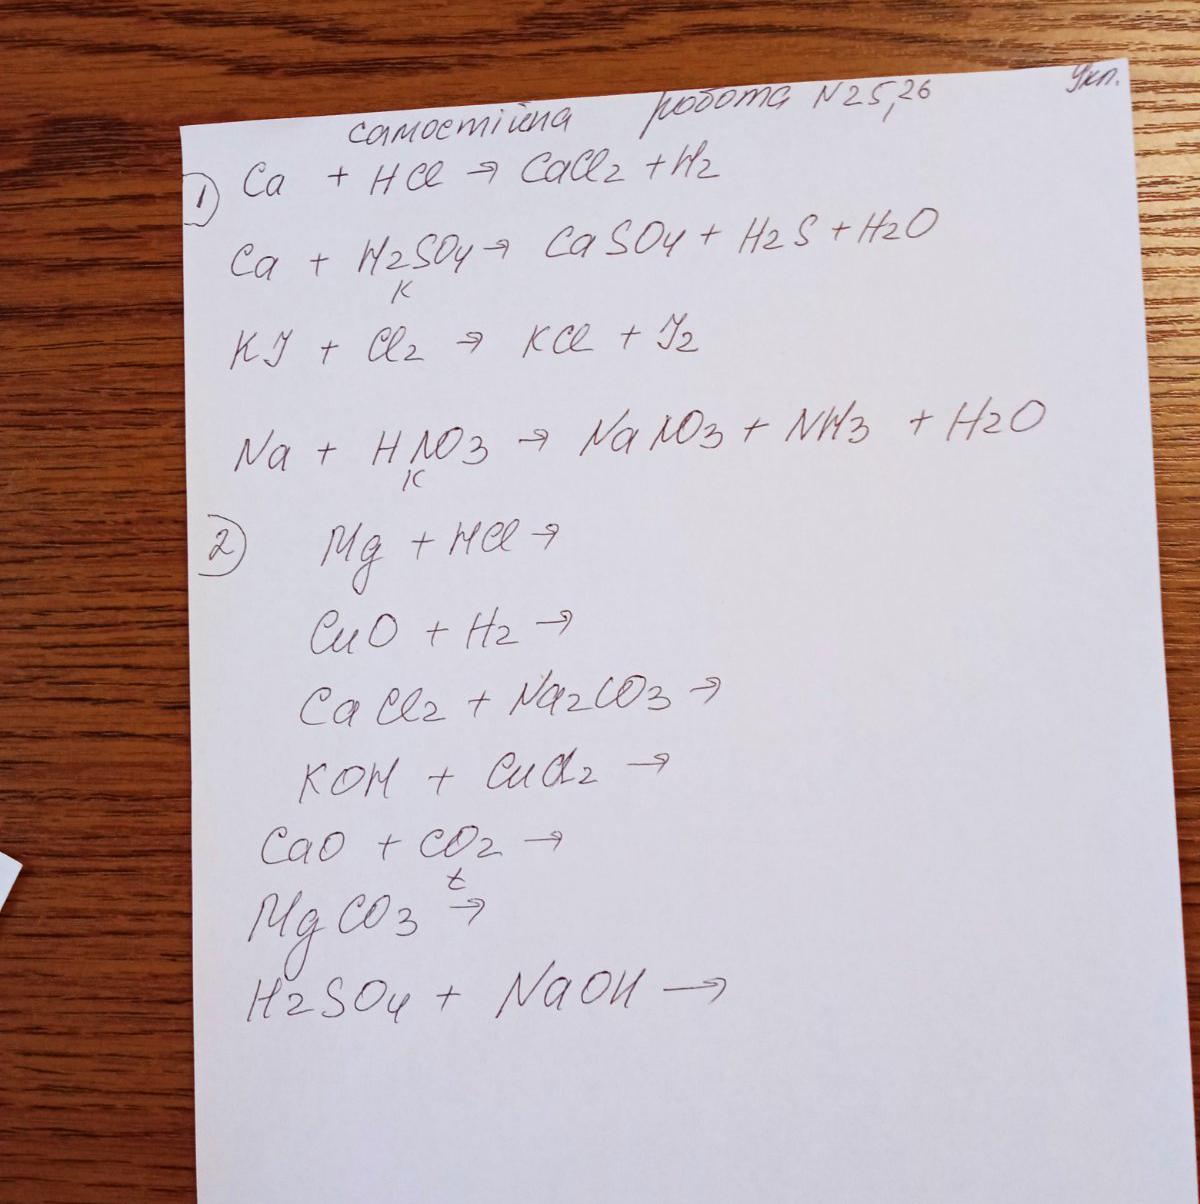 самостійна робота N25,26
1) Ca + HCl → CaCl2 + H2
Ca + H2SO4 → CaSO4 + H2S + H2O
к
KJ + Cl2 → KCl + J2
Na + HNO3 → NaNO3 + NH3 + H2O
к
2) Mg + HCl →
CuO + H2 →
CaCl2 + Na2CO3 →
KOH + CuCl2 →
CaO + CO2 →
t
MgCO3 →
H2SO4 + NaOH →